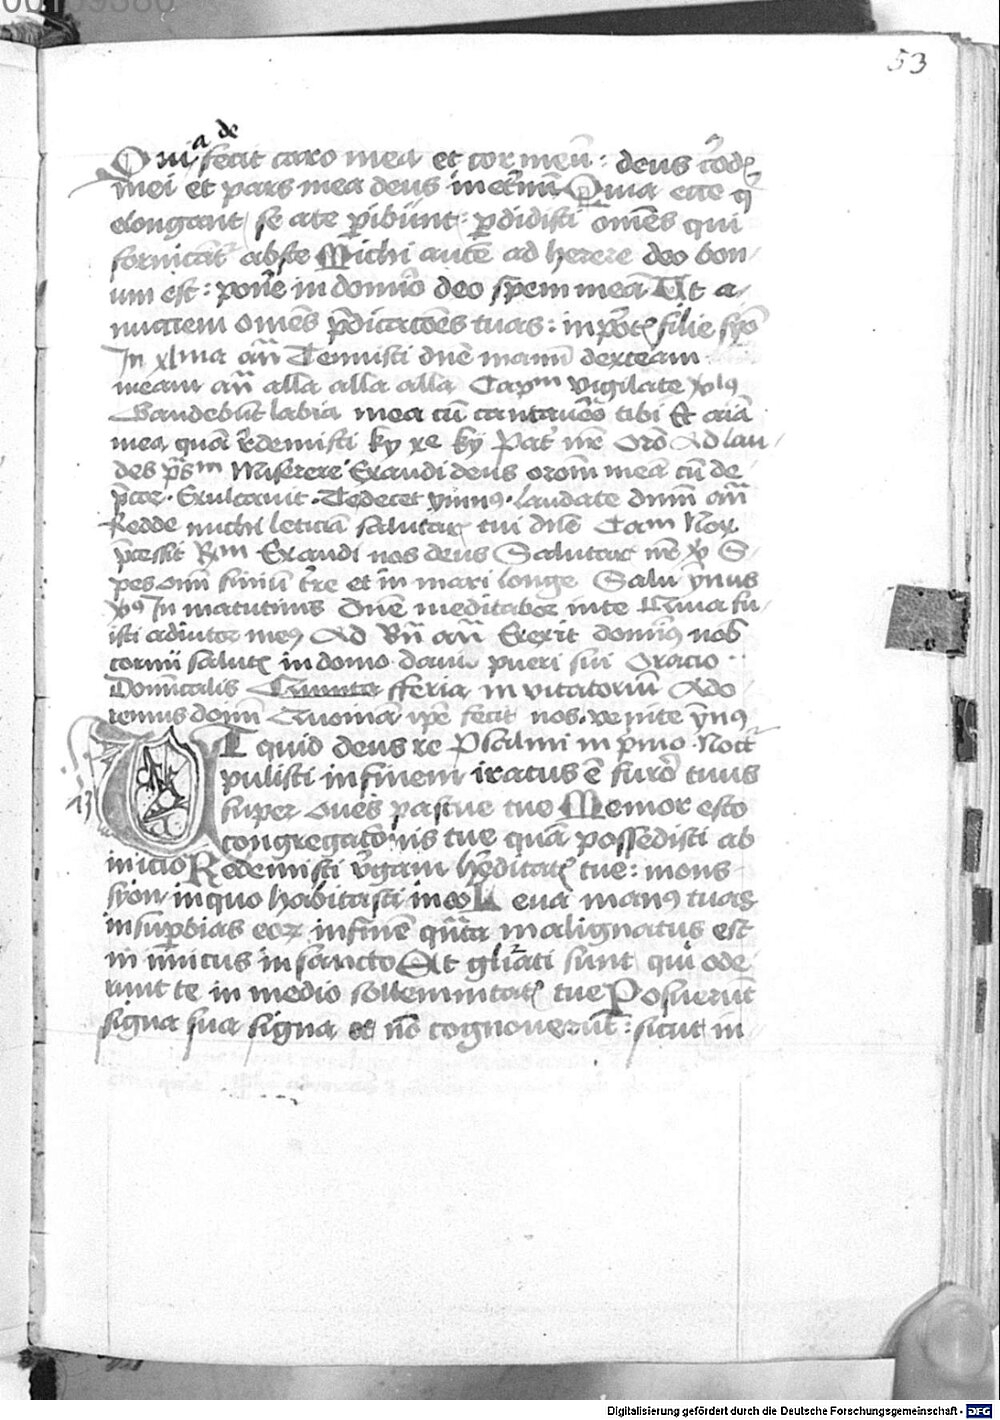 53
Qui a de fecit caro mea et cor meū : deus cōd
mei et pars mea deus in et̄nū Quia ecce q
elongant se a te p̱ibūnt : p̱didisti om̄es qui
fornicāt abs te Michi autē ad herere deo bon
um est : pon̄e in domīo deo spem meā Ut a
nuctiem om̄es p̄dicac̄oes tuas : in port filie syō
In xlma an̄ Tenuisti dn̄e manū dexteram
meam an̄ alla alla alla Capm vigilate
Gaudebūt labia mea cū cantavēo tibi Et aīa
mea quā redemisti ky xe ky Pat n̄r Oro Ad lau
des ps̄m Miserere Exaudi deus orom̄ meā cū de
p̄cor Exultavit Te decet ymnus laudate dnm an̄
Redde michi leticiā salutar tui dn̄e Cam Nox
p̄cessit Rm Exaudi nos deus Salutar n̄r S
pes om̄ finiū t̄re et in mari longe Salu ymus
In matutinis dn̄e meditabor in te Quia fu
isti adiutor meus Ad Bn̄ an̄ Erexit domīs nob
cornu salut in domo david pueri sui Oracio
Domīcalis Quinta fferia in vitatoriū Ado
remus domī Quoniā ip̄e fecit nos venite ymus
Ut quid deus re Psalmi in p̄mo Noct̄
pulisti in finem iratus ē furor tuus
super oves pascue tue Memor esto
congregacōnis tue quā possedisti ab
inicio Redemisti v̄gam hēditat tue : mons
syon in quo habitasti in eo Leva manus tuas
in sup̱bias eorꝫ in finē quāta malignatus est
in imicus in sancto Et gl̄iati sunt qui ode
runt te in medio sollemnitat tue Posuerūt
signa sua signa et nō cognoverūt : sicut in
Digitalisierung gefördert durch die Deutsche Forschungsgemeinschaft - DFG